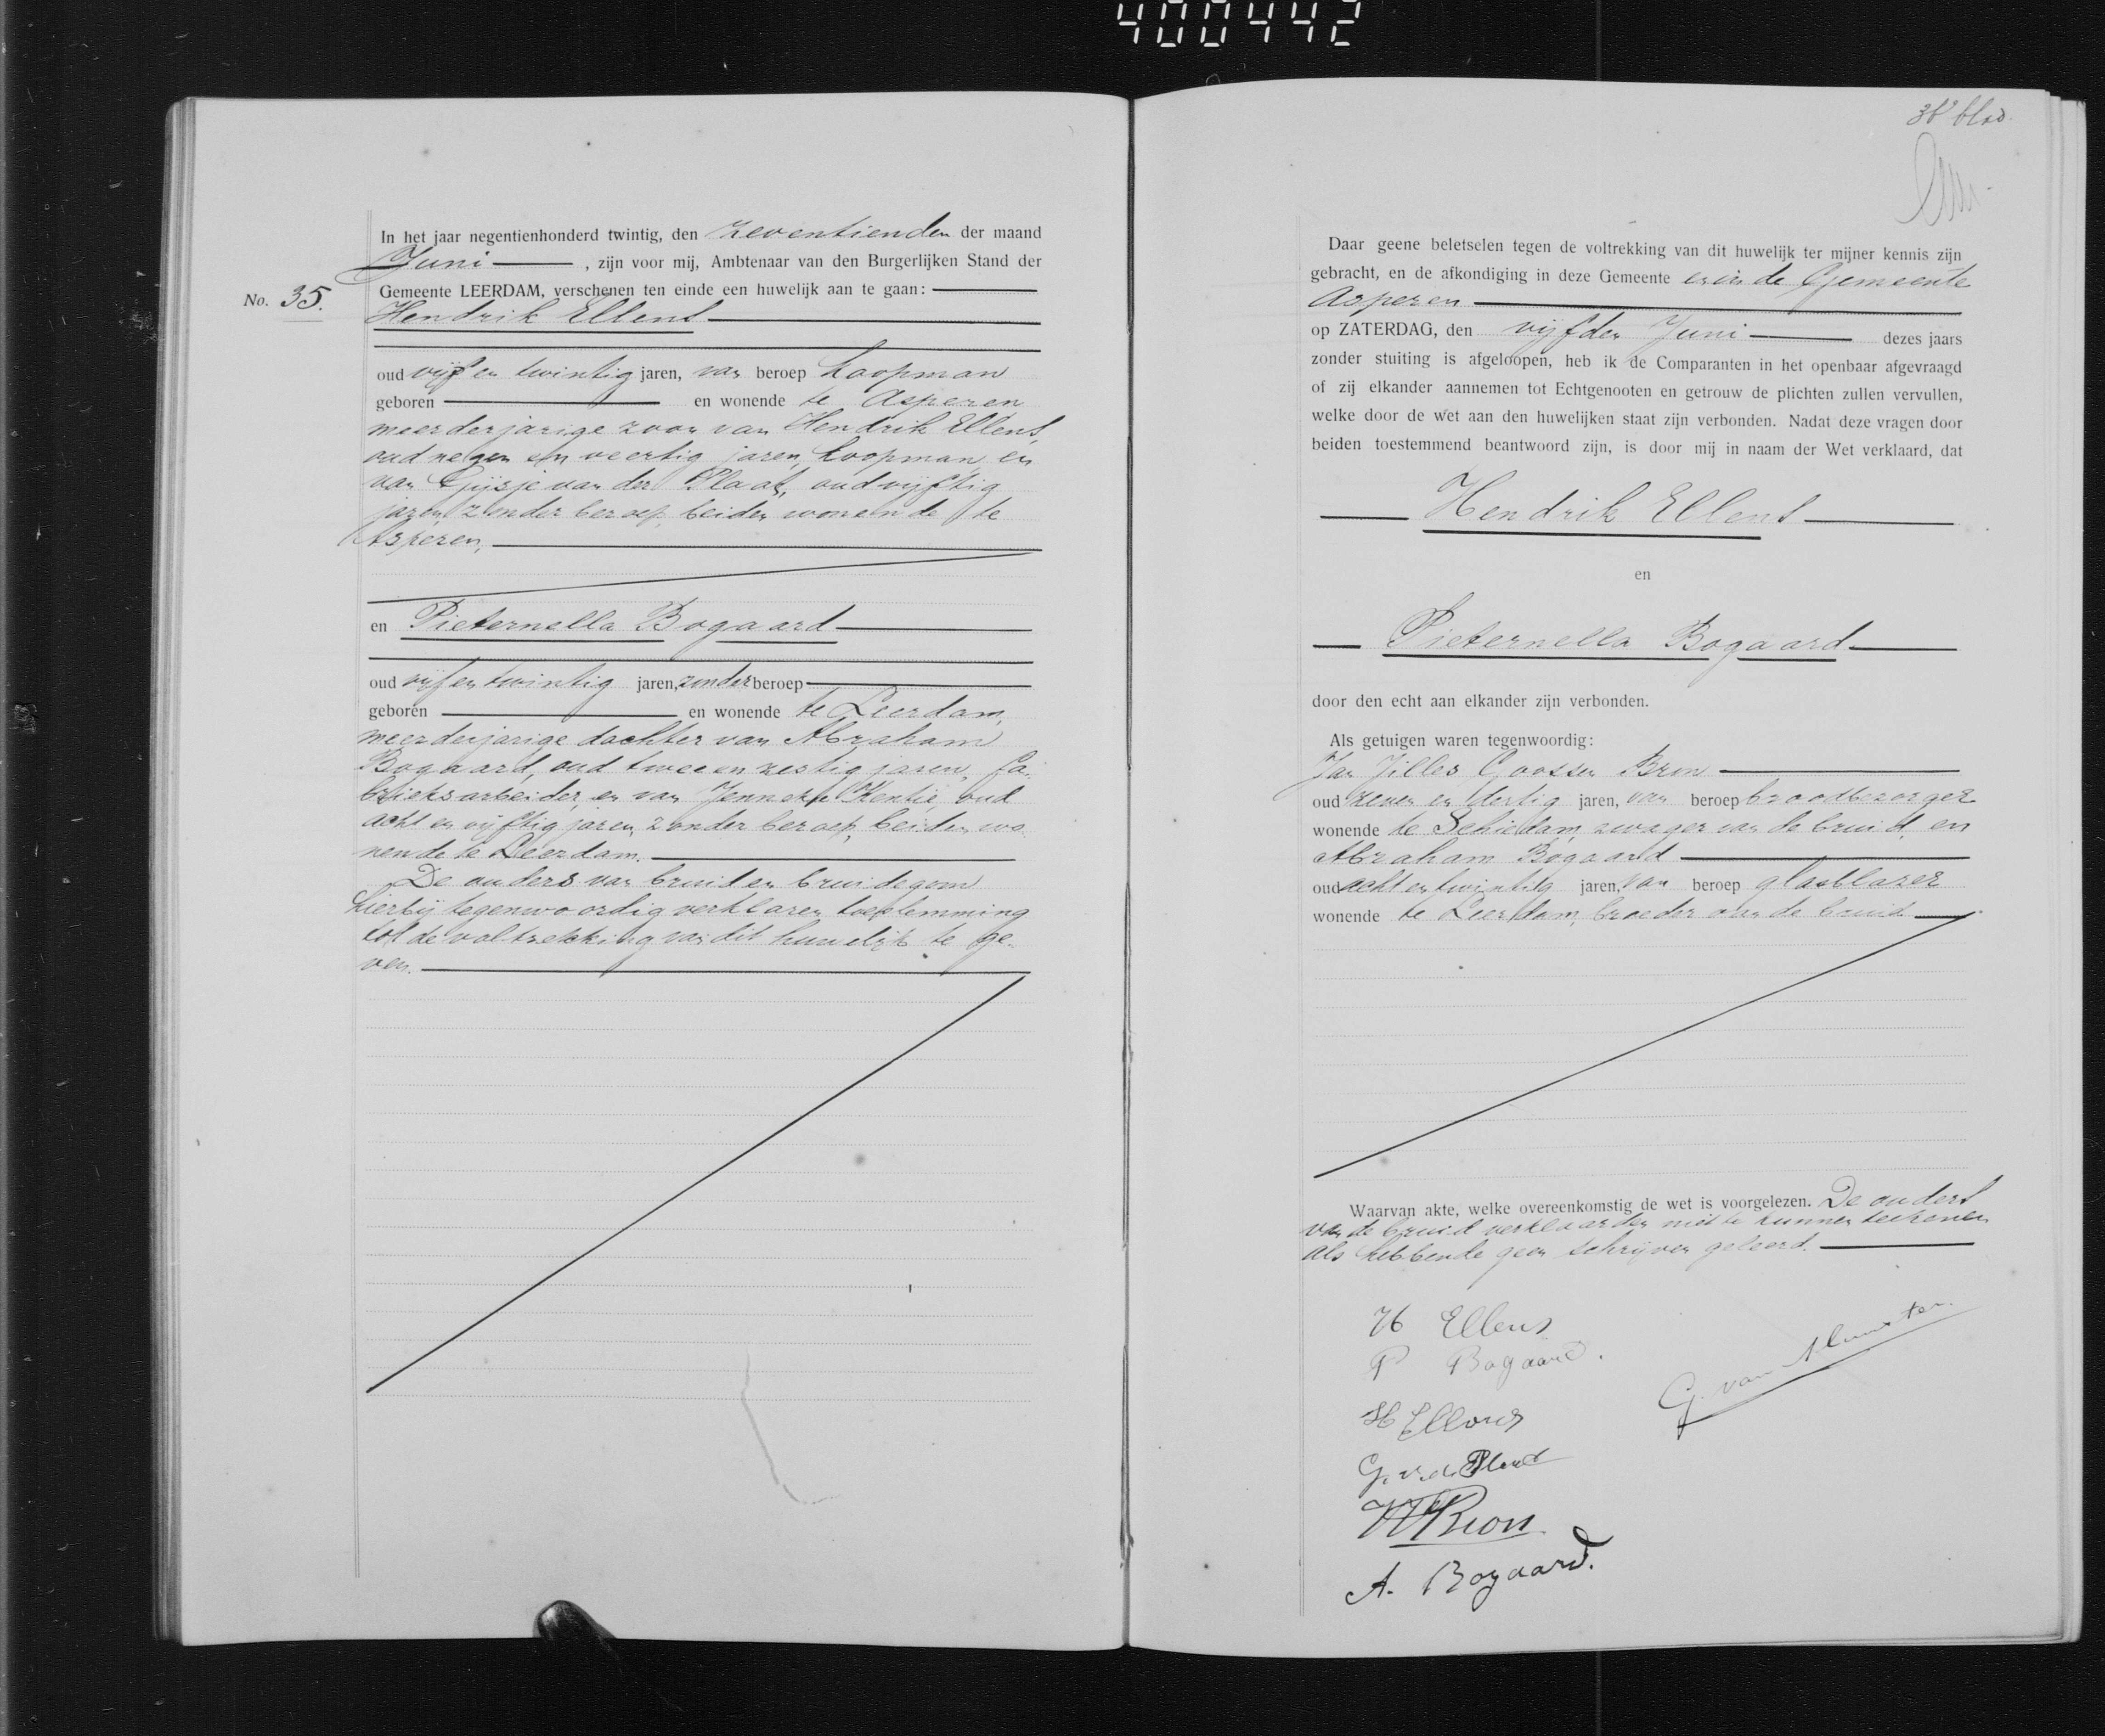 400442
In het jaar negentienhonderd twintig, den zeventienden der maand
Juni, zijn voor mij, Ambtenaar van den Burgerlijken Stand der
Gemeente LEERDAM, verschenen ten einde een huwelijk aan te gaan:
No. 35.
Hendrik Ellens
oud vijf en twintig jaren, van beroep koopman
geboren en wonende te Asperen
meerderjarige zoon van Hendrik Ellens,
oud negen en veertig jaren, koopman, en
van Gijsje van der Plaat, oud vijftig
jaren, zonder beroep, beiden wonende te
Asperen,
en Pieternella Bogaard
oud vijf en twintig jaren, zonder beroep
geboren en wonende te Leerdam,
meerderjarige dochter van Abraham
Bogaard, oud twee en zestig jaren, fa-
brieksarbeider, en van Jenneke Kentie, oud
acht en vijftig jaren, zonder beroep, beiden wo-
nende te Leerdam.
De ouders van bruid en bruidegom
hierbij tegenwoordig verklaren toestemming
tot de voltrekking van dit huwelijk te ge-
ven.
36e blad.
Daar geene beletselen tegen de voltrekking van dit huwelijk ter mijner kennis zijn
gebracht, en de afkondiging in deze Gemeente en in de Gemeente
Asperen
op ZATERDAG, den vijfden Juni dezes jaars
zonder stuiting is afgeloopen, heb ik de Comparanten in het openbaar afgevraagd
of zij elkander aannemen tot Echtgenooten en getrouw de plichten zullen vervullen,
welke door de wet aan den huwelijken staat zijn verbonden. Nadat deze vragen door
beiden toestemmend beantwoord zijn, is door mij in naam der Wet verklaard, dat
Hendrik Ellens
en
Pieternella Bogaard
door den echt aan elkander zijn verbonden.
Als getuigen waren tegenwoordig:
Jan Jilles Goossen Bron
oud zeven en dertig jaren, van beroep broodbezorger
wonende te Schiedam, zwager van de bruid, en
Abraham Bogaard
oud acht en twintig jaren, van beroep glasblazer
wonende te Leerdam, broeder van de bruid
Waarvan akte, welke overeenkomstig de wet is voorgelezen. De ouders
van de bruid verklaarden niet te kunnen teekenen
als hebbende geen schrijven geleerd.
H Ellens
P Bogaard.
H Ellens
G. v. d. Plaat
Bron
A. Bogaard.
G. van